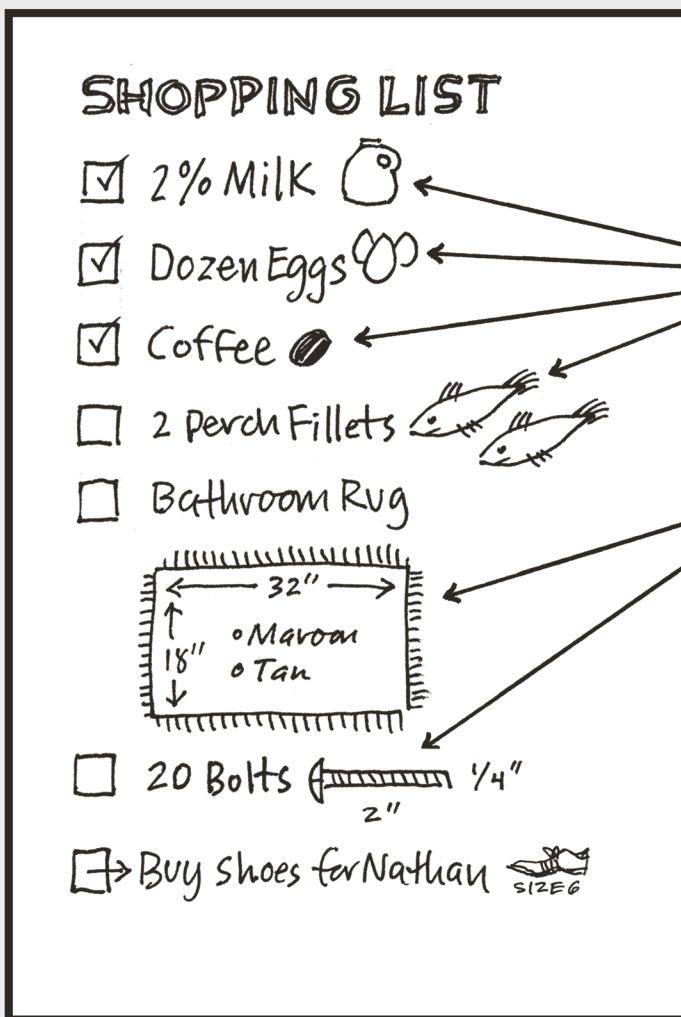 SHOPPING LIST
2% Milk
Dozen Eggs
Coffee
2 Perch Fillets
Bathroom Rug
32"
18"
Maroon
Tan
20 Bolts 1/4"
2"
Buy Shoes for Nathan
SIZE 6